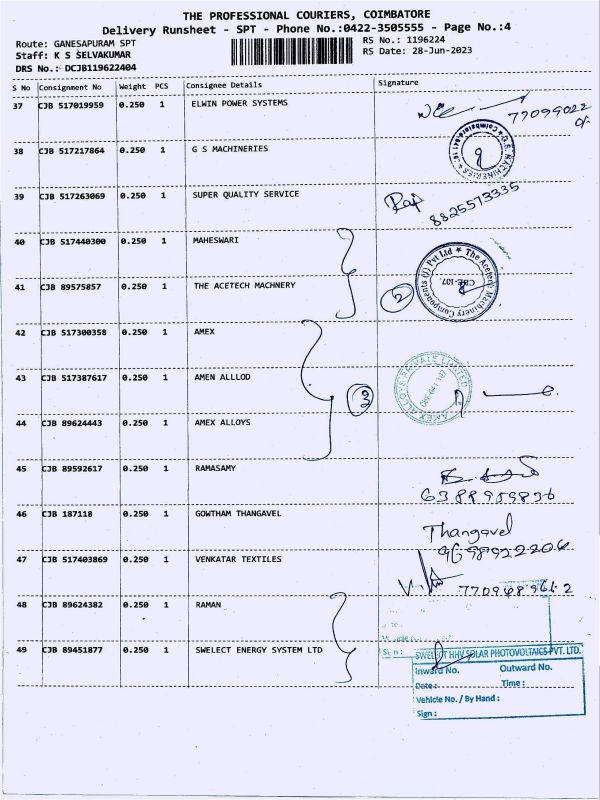 THE PROFESSIONAL COURIERS, COIMBATORE
Delivery Runsheet - SPT - Phone No.:0422-3505555 - Page No.:4
Route: GANESAPURAM SPT
RS No.: 1196224
Staff: K S SELVAKUMAR
RS Date: 28-Jun-2023
DRS No.: DCJB119622404
S No Consignment No Weight PCS Consignee Details Signature
37 CJB 517019959 0.250 1 ELWIN POWER SYSTEMS
77099022
38 CJB 517217864 0.250 1 G S MACHINERIES
G.S. MACHINERIES
39 CJB 517263069 0.250 1 SUPER QUALITY SERVICE
8825573335
40 CJB 517440300 0.250 1 MAHESWARI
41 CJB 89575857 0.250 1 THE ACETECH MACHINERY
2
The Acetech Machinery Components (I) Pvt Ltd
CBE-107.
42 CJB 517300358 0.250 1 AMEX
43 CJB 517387617 0.250 1 AMEN ALLLOD
3
AMEX ALLOYS PRIVATE LIMITED
44 CJB 89624443 0.250 1 AMEX ALLOYS
45 CJB 89592617 0.250 1 RAMASAMY
6388959836
46 CJB 187118 0.250 1 GOWTHAM THANGAVEL
Thangavel
9698922206
47 CJB 517403869 0.250 1 VENKATAR TEXTILES
48 CJB 89624382 0.250 1 RAMAN
49 CJB 89451877 0.250 1 SWELECT ENERGY SYSTEM LTD
SWELECT HHV SOLAR PHOTOVOLTAICS PVT. LTD.
Inward No. Outward No.
Date : Time :
Vehicle No. / By Hand :
Sign :